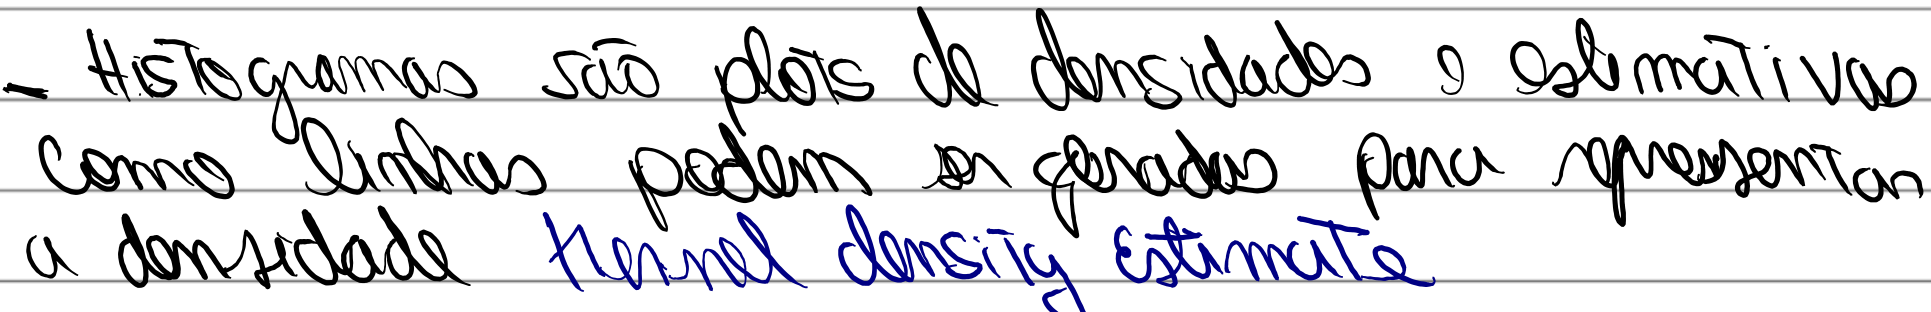 - Histogramas são plots de densidades e estimativas
como linhas podem ser geradas para apresentar
a densidade Kernel density Estimate